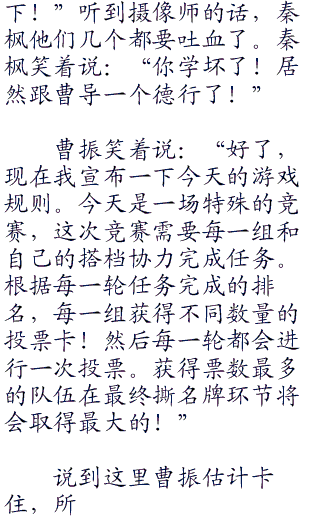 下！”听到摄像师的话，秦
枫他们几个都要吐血了。秦
枫笑着说：“你学坏了！居
然跟曹导一个德行了！”
曹振笑着说：“好了，
现在我宣布一下今天的游戏
规则。今天是一场特殊的竞
赛，这次竞赛需要每一组和
自己的搭档协力完成任务。
根据每一轮任务完成的排
名，每一组获得不同数量的
投票卡！然后每一轮都会进
行一次投票。获得票数最多
的队伍在最终撕名牌环节将
会取得最大的！”
说到这里曹振估计卡
住，所